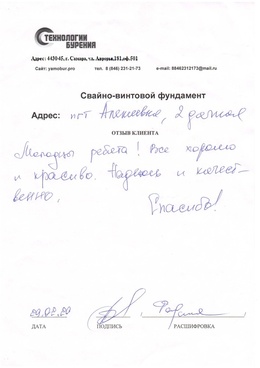 ТЕХНОЛОГИИ
БУРЕНИЯ
Адрес: 443045, г. Самара, ул. Авроры,181,оф.501
Сайт: yamobur.pro тел. 8 (846) 231-21-73 e-mail: 88462312173@mail.ru
Свайно-винтовой фундамент
Адрес: пгт Алексеевка, 2 дачная
ОТЗЫВ КЛИЕНТА
Молодцы ребята! Все хорошо
и красиво. Надеюсь и качест-
венно.
Спасибо!
ДАТА ПОДПИСЬ РАСШИФРОВКА